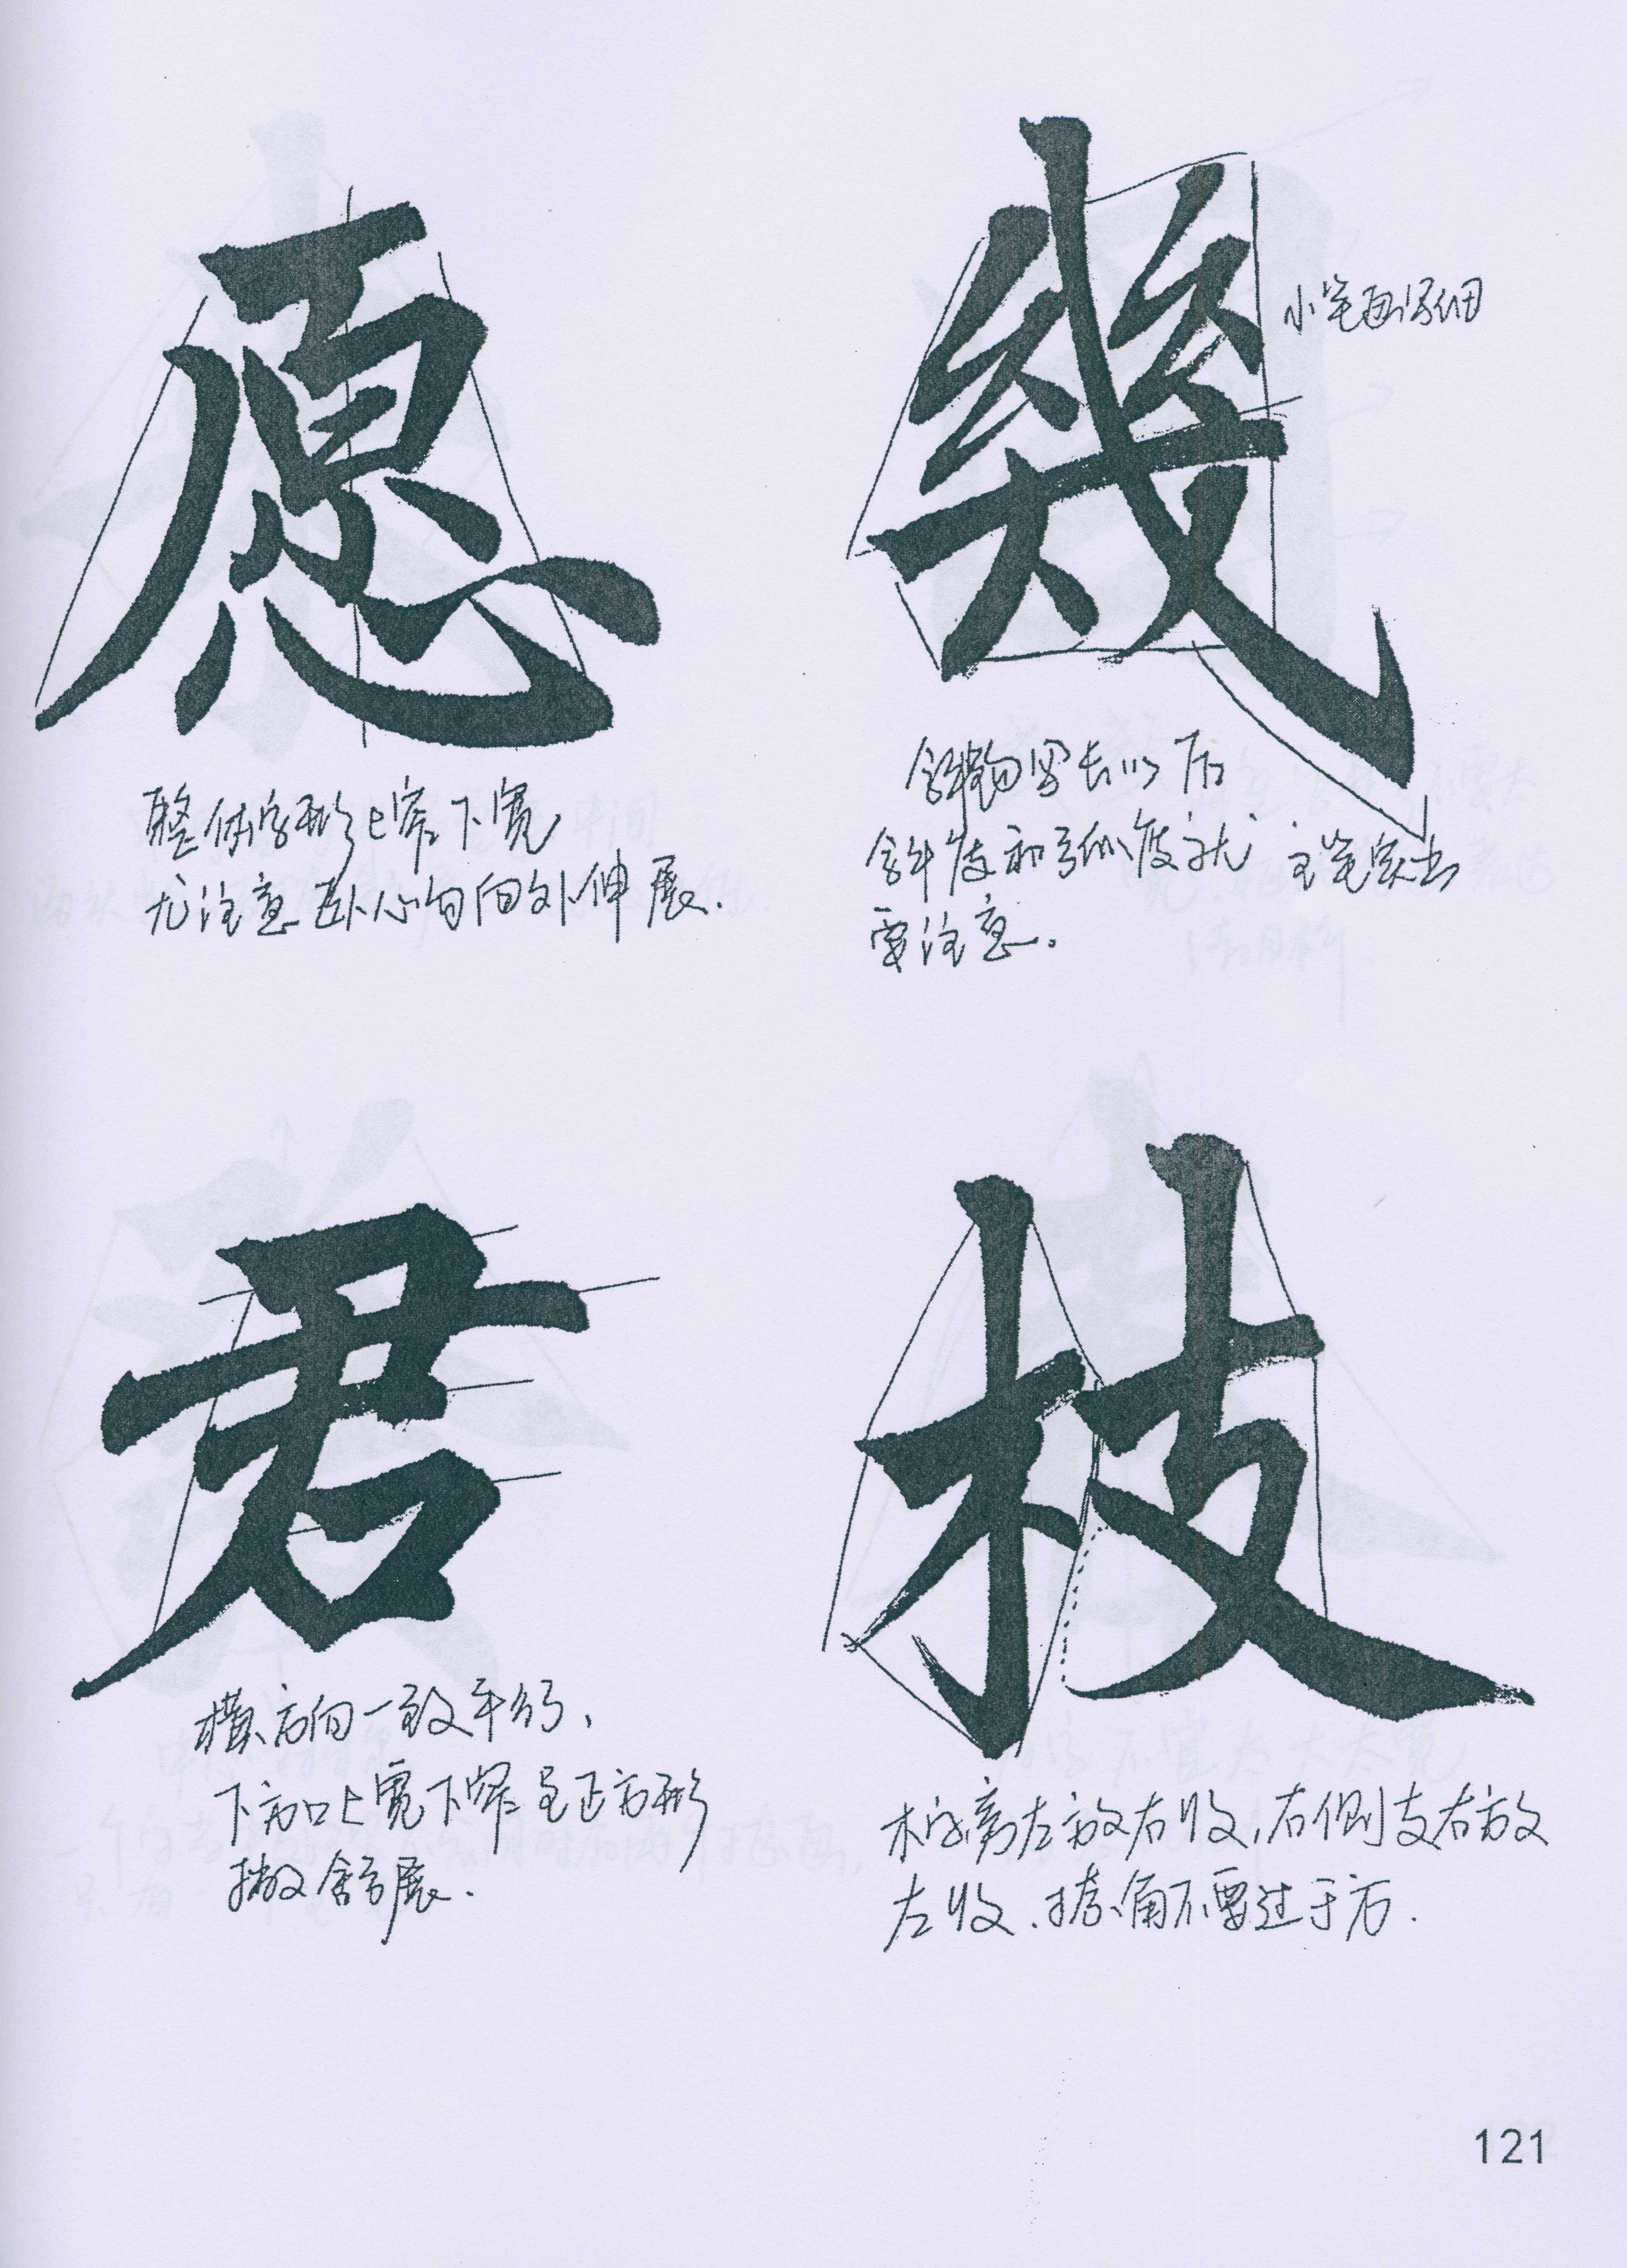 愿
整体字形上窄下宽
尤注意卧心勾向外伸展.
幾
小笔画写细
斜勾写长以后
斜度和弧度就
要注意.
主笔突出
君
横方向一致平行、
下方口上宽下窄呈正方形
撇舒展.
枝
木字旁左放右收,右侧支右放
左收.折角不要过于方.
121